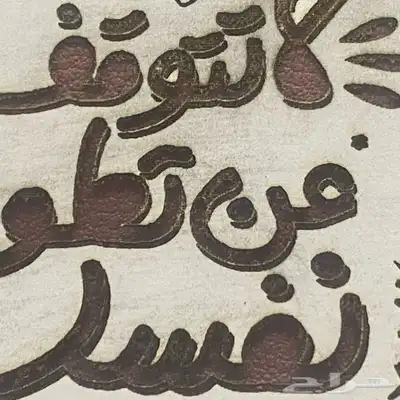 لا تتوقف
عن تطو
نفسك